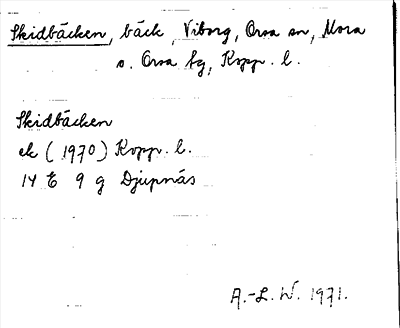 Skidbäcken, bäck, Viborg, Orsa sn, Mora
o. Orsa tg, Kopp. l.
Skidbäcken
ek (1970) Kopp. l.
14 E 9 g Djupnäs
A.-L. W. 1971.